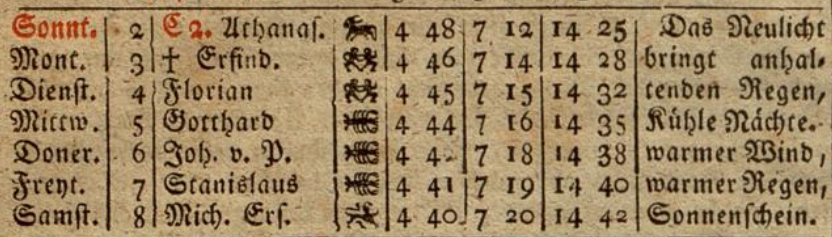 Sonnt. 2 C 2. Athanas. 4 48 7 12 14 25 Das Neulicht
Mont. 3 † Erfind. 4 46 7 14 14 28 bringt anhal-
Dienst. 4 Florian 4 45 7 15 14 32 tenden Regen,
Mittw. 5 Gotthard 4 44 7 16 14 35 Kühle Nächte.
Doner. 6 Joh. v. P. 4 4 7 18 14 38 warmer Wind,
Freyt. 7 Stanislaus 4 41 7 19 14 40 warmer Regen,
Samst. 8 Mich. Ers. 4 40 7 20 14 42 Sonnenschein.